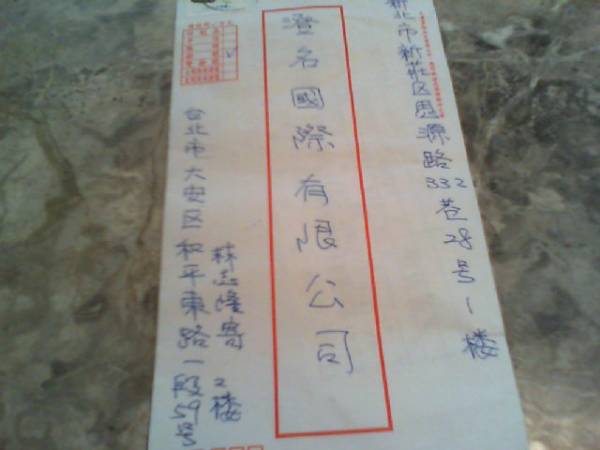 新北市新莊区思源路332巷28号1楼
澄名國際有限公司
台北市大安区和平東路一段
2楼
林志隆寄